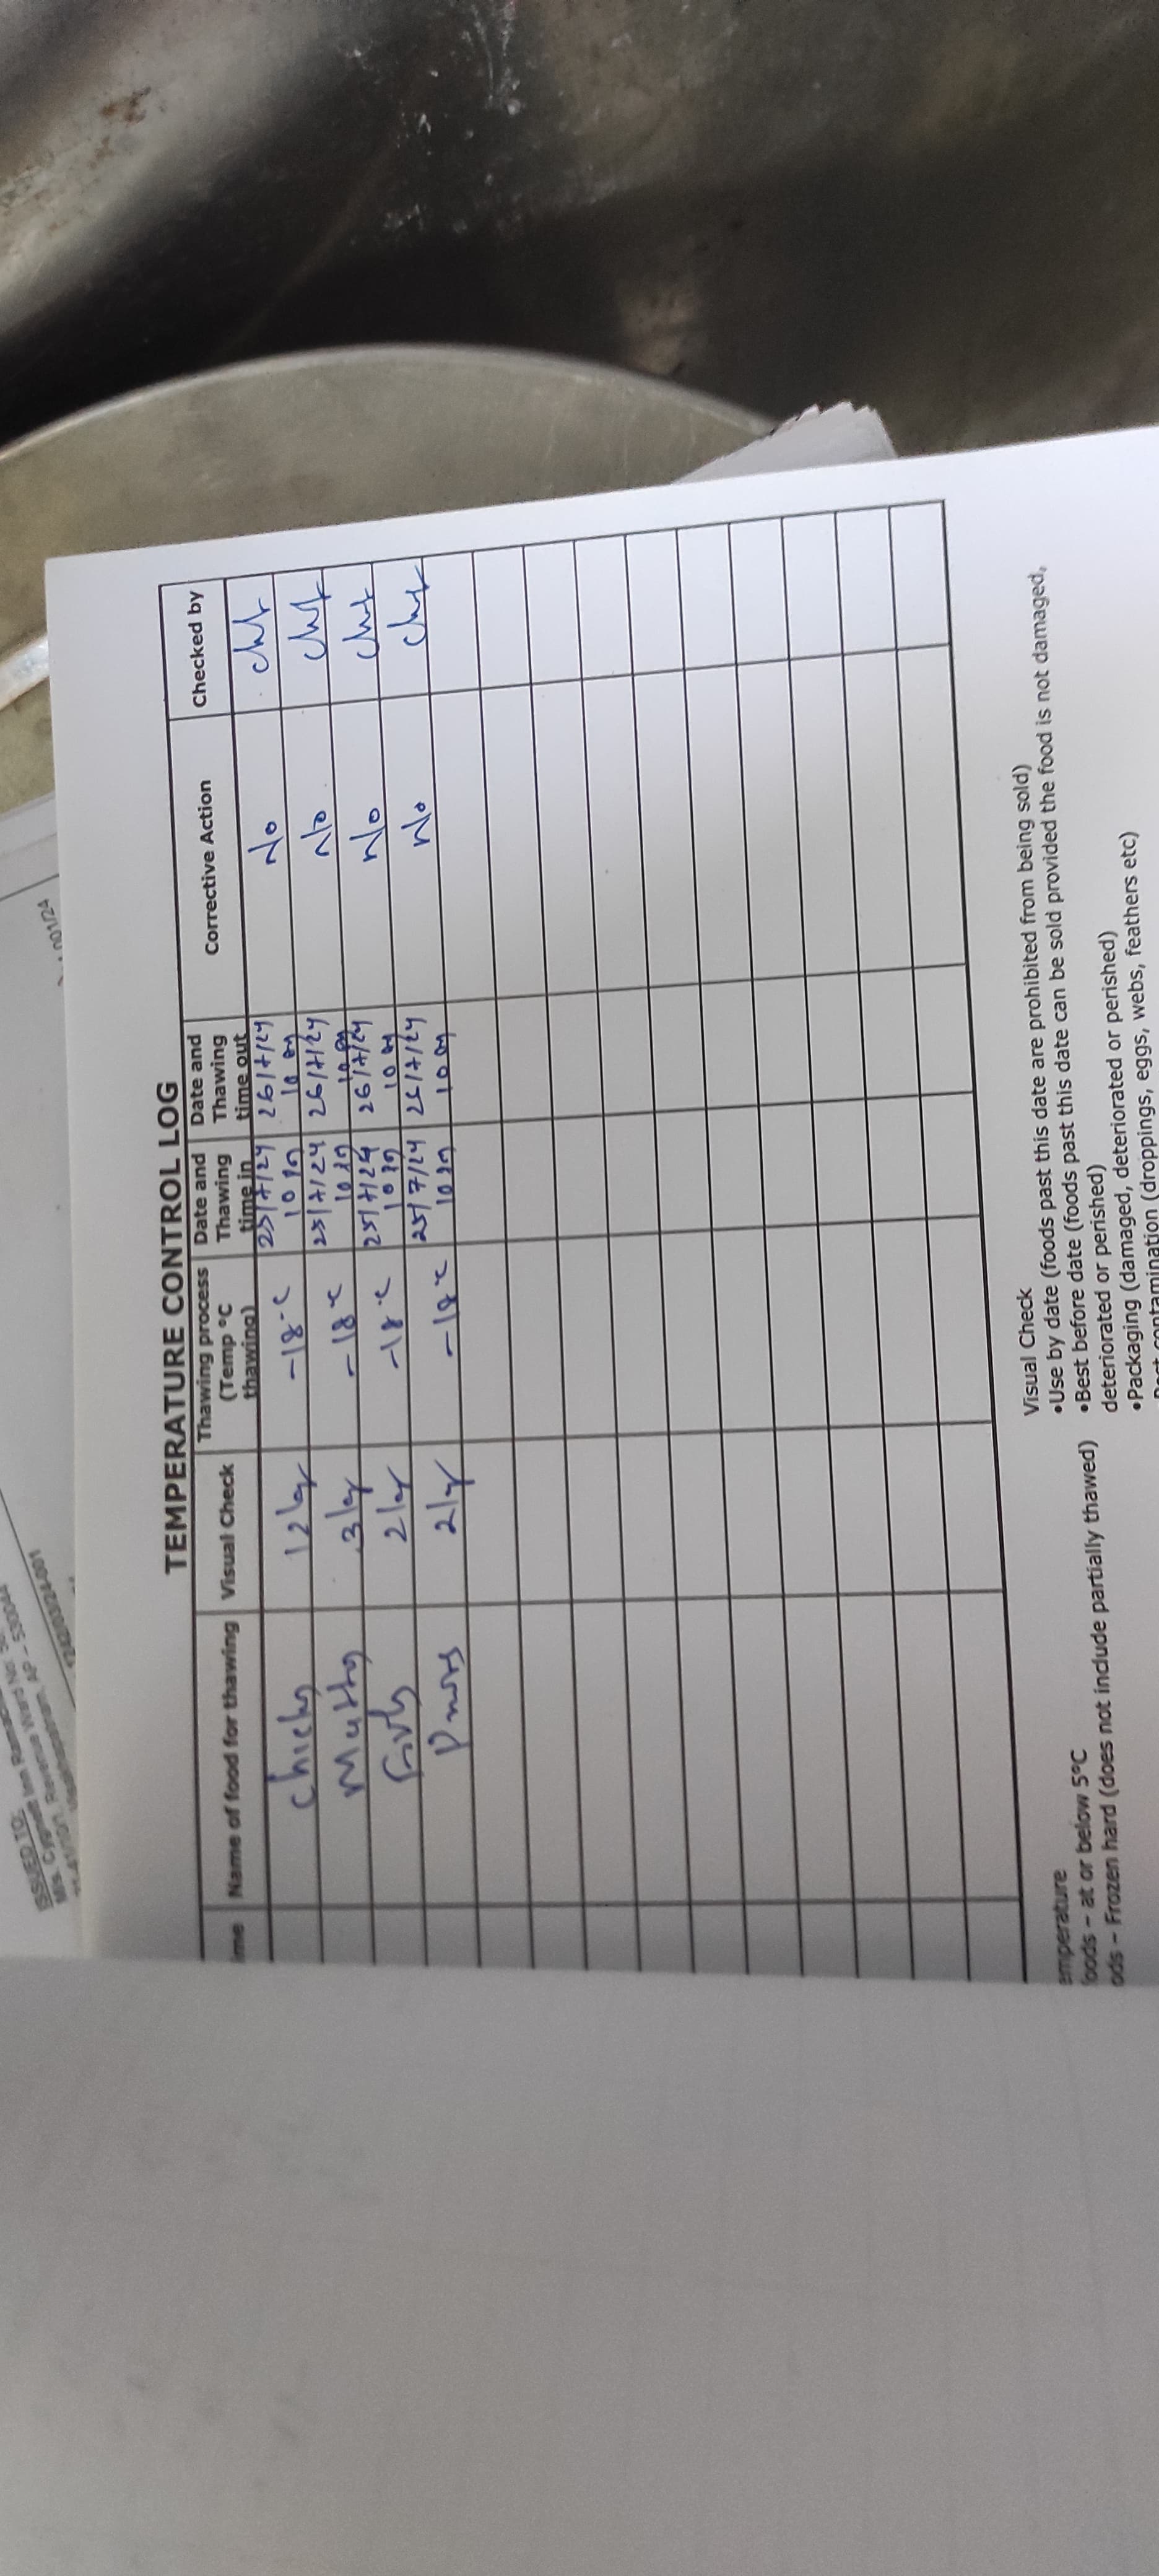 001/24
ISSUED TO:
TEMPERATURE CONTROL LOG
ime Name of food for thawing Visual Check Thawing process (Temp °C thawing) Date and Thawing time in Date and Thawing time out Corrective Action Checked by
12 kg -18°C 25/7/24 26/7/24 No chef
3 kg -18°C 25/7/24 26/7/24 No chef
2 kg -18°C 25/7/24 26/7/24 No chef
2 kg -18°C 25/7/24 26/7/24 No chef
emperature
foods – at or below 5°C
ods – Frozen hard (does not include partially thawed)
Visual Check
•Use by date (foods past this date are prohibited from being sold)
•Best before date (foods past this date can be sold provided the food is not damaged,
deteriorated or perished)
•Packaging (damaged, deteriorated or perished)
contamination (droppings, eggs, webs, feathers etc)